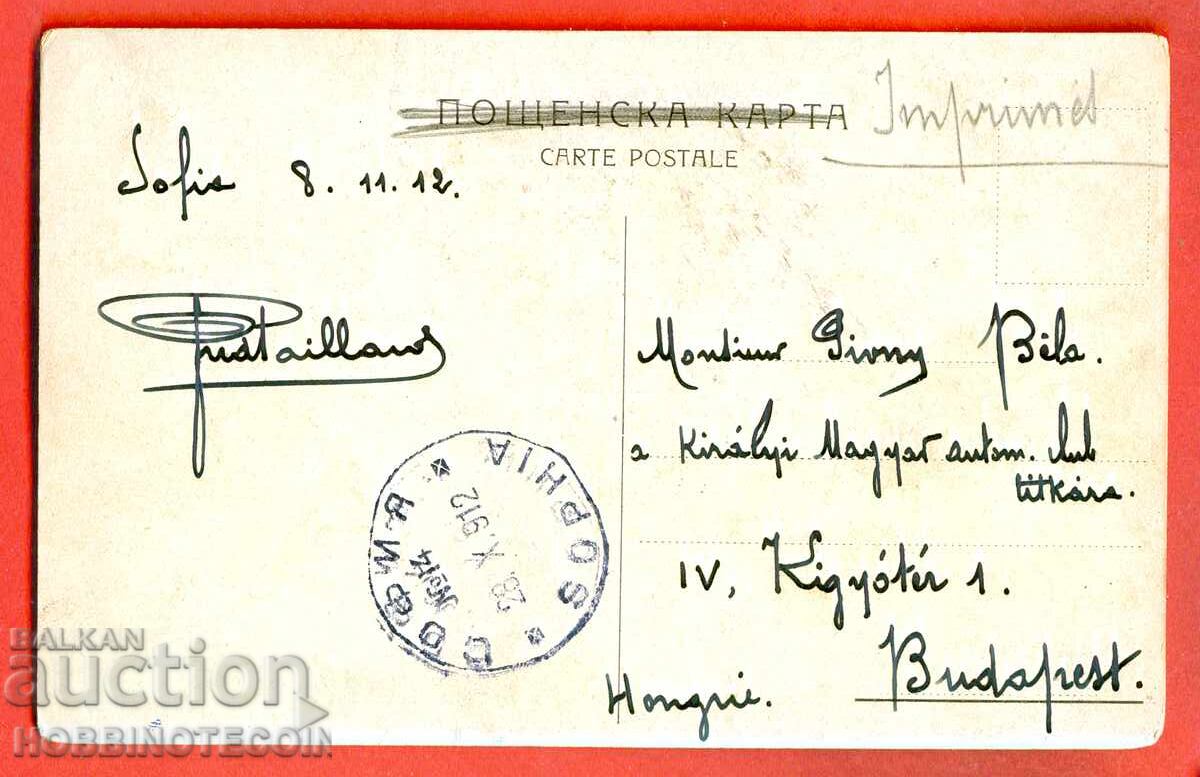 ПОЩЕНСКА КАРТА
Imprimés
CARTE POSTALE
Sofia 8. 11. 12.
Monsieur Pivny Béla.
a Királyi Magyar autom. club
titkára.
IV, Kigyótér 1.
Budapest.
Hongrie.
СОФИЯ * SOPHIA *
№14
28.X.912
BALKAN
auction
HOBBINOTECOIN